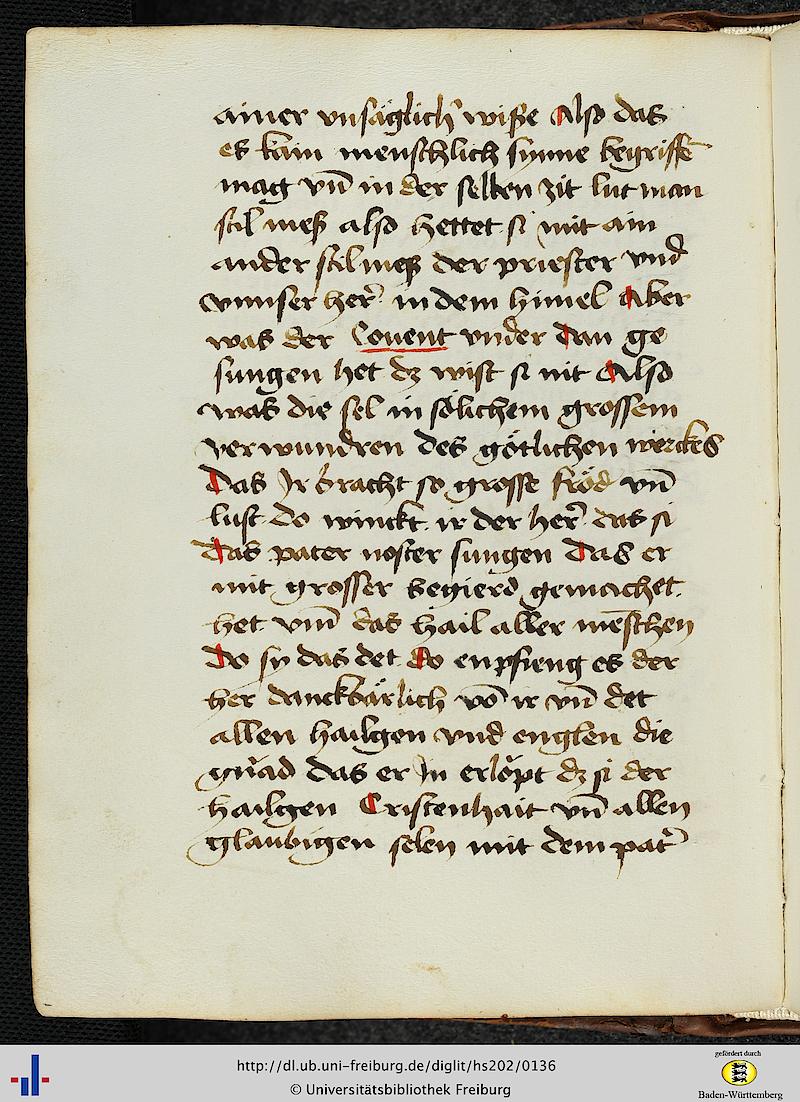 ainer vnsäglich' wiße Also das
es kain menschlich synne begriffē
mag vn̄ in der selben zit lut man
stil meß also hettet si mit ain
ander stil meß der priester vnd
vnnser her' in dem himel Aber
was der Couent vnder dan ge
sungen het dz wist si nit Also
was die sel in sölichem grossem
verwundren des götlichen werckes
Das Ir bracht so grosse fröd vn̄
lust do winckt ir der her' das si
das pater noster sungen das er
mit grosser begierd gemachet
het vm̄ das hail aller mēschen
Do sy das det do enpfieng es der
her danckbärlich vō ir vn̄ det
allen hailgen vnd englen die
gnad das er In erlopt dz si der
hailgen Cristenhait vn̄ allen
glaubigen selen mit dem pat'
http://dl.ub.uni-freiburg.de/diglit/hs202/0136
© Universitätsbibliothek Freiburg
gefördert durch
Baden-Württemberg